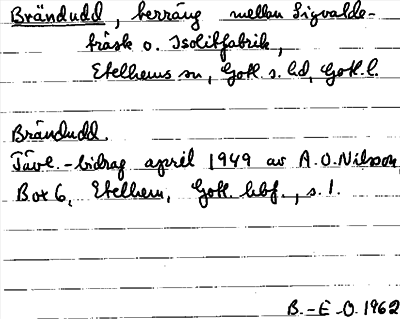 Brändudd, terräng mellan Sigvalde-
träsk o. Isolitfabrik,
Etelhems sn, Gotl. s. hd, Gotl. l.
Brändudd.
Tävl.-bidrag april 1949 av A.O. Nilsson,
Box 6, Etelhem, Gotl. hbf., s. 1.
B.-E-O. 1962